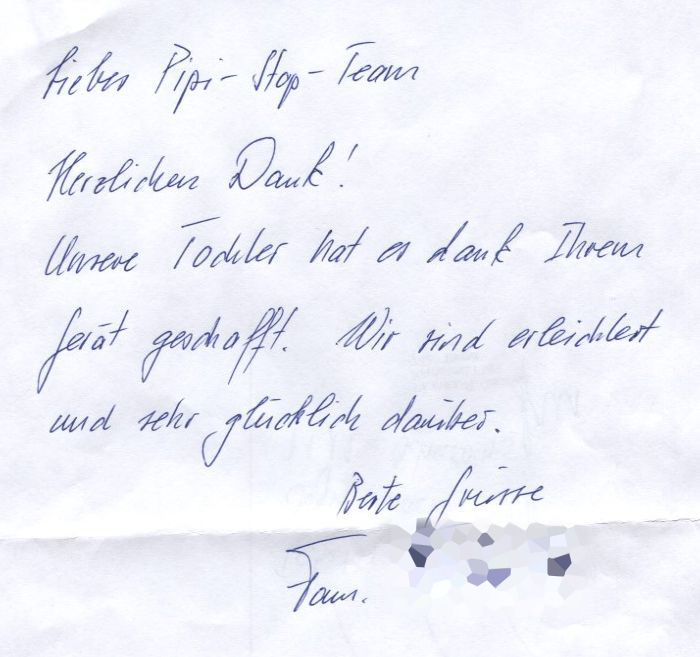 Liebes Pipi-Stop-Team
Herzlichen Dank!
Unsere Tochter hat es dank Ihrem
Gerät geschafft. Wir sind erleichtert
und sehr glücklich darüber.
Beste Grüsse
Fam.